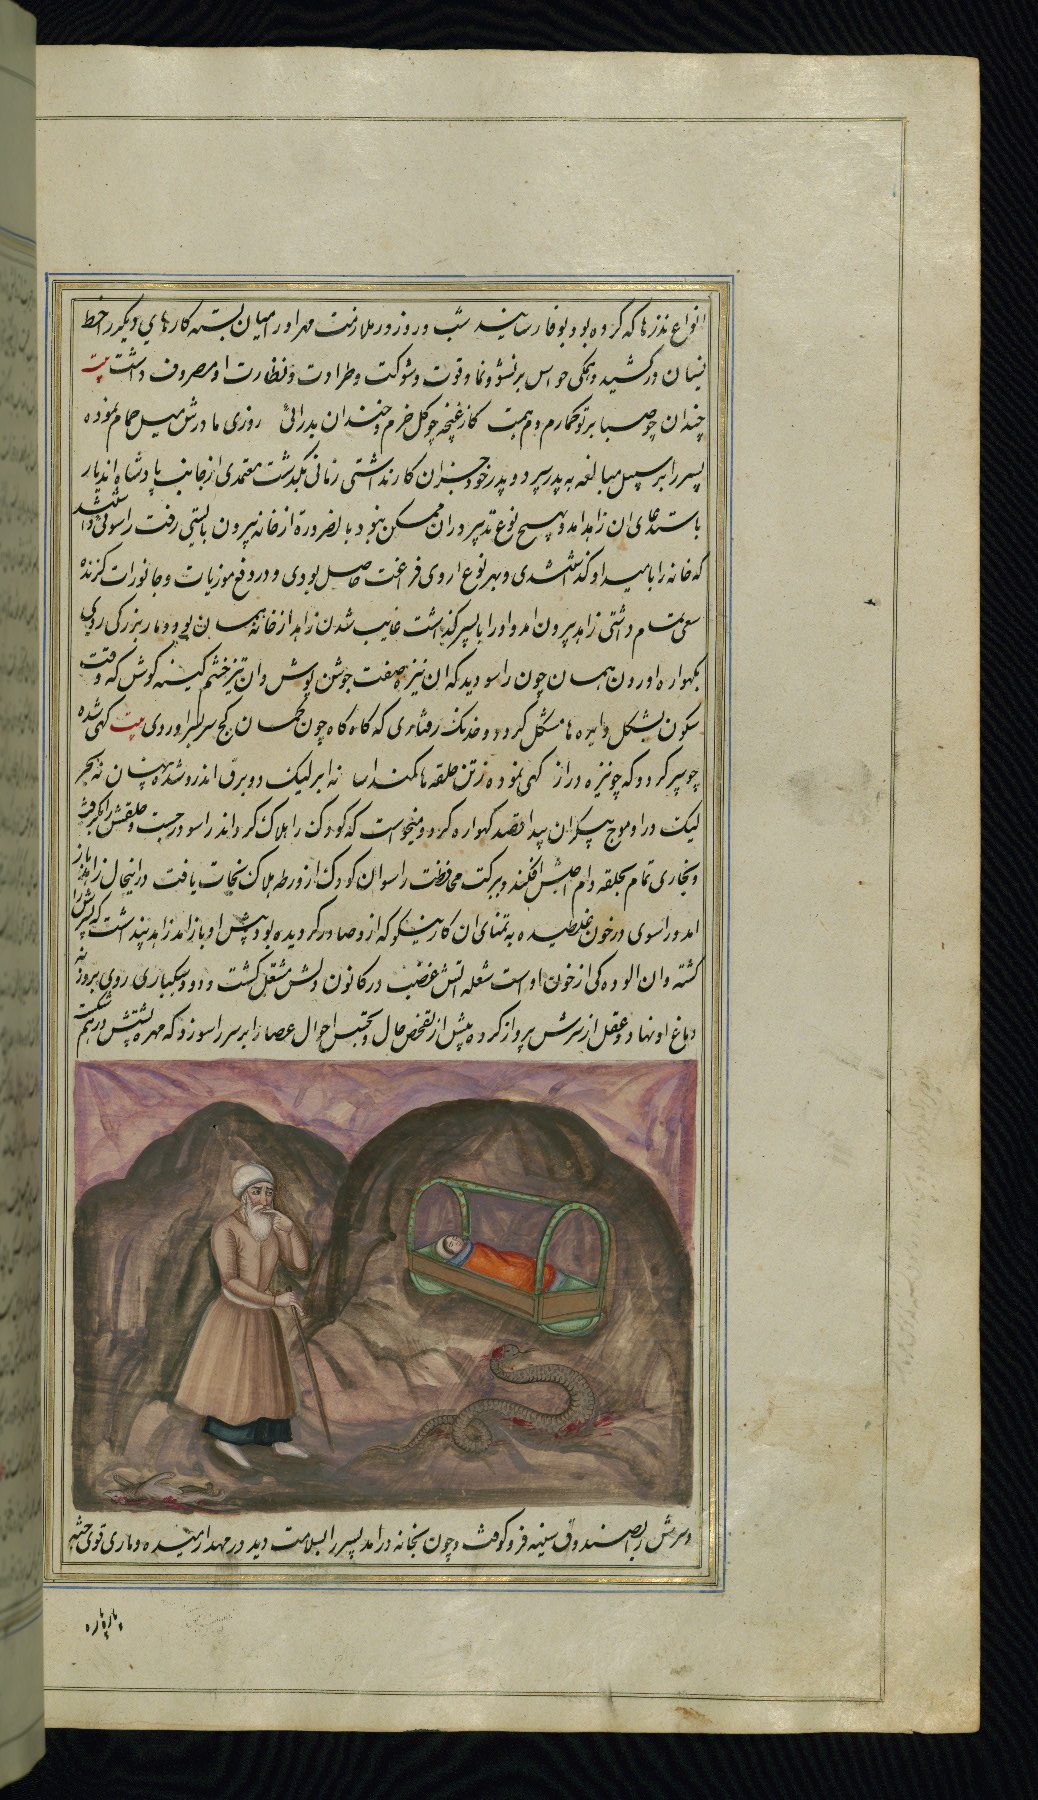 انواع نذرها که کرده بود بوفا رسانید شب و روز در ملازمت مهد او را میان بسته کارهای دیگر را خط
نسیان در کشید و همکی حواس بر نشو و نما و قوت و شوکت و طراوت و نظارت او مصروف داشت بیت
چندان چو صبا بر تو کمارم دم همت کاز غنچه چو کل خرم و خندان بدر ائی روزی مادرش میل حمام نموده
پسر را بر سبیل مبالغه به پدر سپرد و پدر خود جز ان کار نداشتی زمانی بگذشت معتمدی از جانب پادشاه اندیار
باستدعای ان زاهد امد و بهیچ نوع تدبیر در ان ممکن نبود بالضرورة از خانه بیرون بایستی رفت راسوئی داشتند
که خانه را بامید او گذاشتندی و بهر نوع از وی فراغت حاصل بودی و در دفع موذیات و جانورات گزنده
سعی تمام داشتی زاهد بیرون امد و او را با پسر گذاشت غایب شدن زاهد از خانه همان بود و مار بزرگی روی
بگهواره اوردن همان چون راسو دید که ان نیزه صفت جوشن پوش و ان تیز خشم کینه کوش که وقت
سکون بشکل دایره ها مشکل کردد و خدنک رفتاری که کاه کاه چون کمان کج سر بسر اوردی بیت کهی شده
چو سپر کرد و که چو نیزه دراز کهی نموده ز تن حلقه ها کمند اسا نه ابر لیک دو برق اندرو شده پنهان نه بحر
لیک در او موج بیکران پیدا قصد کهواره کرد و میخواست که کودک را هلاک کرداند راسو در جست و حلقش را بگرفت
و بخاری تمام بحلقه دام اجلش افکند و ببرکت محافظت راسو ان کودک از ورطه هلاک نجات یافت در اینحال زاهد باز
امد و راسوی در خون غلطیده به تمنای ان کار نیکو که از و صادر کردیده بود پیش او باز امد زاهد پنداشت که پسرش را
کشته و ان الوده کی از خون اوست شعله اتش غضب در کانون دلش مشتعل کشت و دود سبکباری روی بروزنه
دماغ او نهاد و عقل از سرش پرواز کرده پیش از تفحص حال و تجسس احوال عصا را بر سر راسو زد که مهره پشتش در هم شکست
و سرش بصندوق سینه فرو کوفت و چون بخانه درامد پسر را بسلامت دید در مهد ارمیده و ماری قوی جثه
پاره پاره